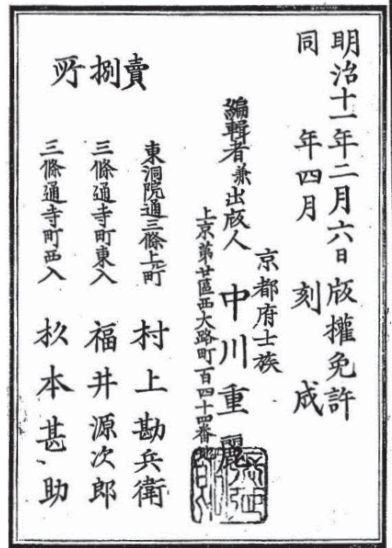 明治十一年二月六日版權免許
同年四月刻成
京都府士族
編輯者兼出版人 中川重麗
上京第廿區西大路町百四十四番地
賣捌所
東洞院通三條上町 村上勘兵衛
三條通寺町東入 福井源次郎
三條通寺町西入 杦本甚助